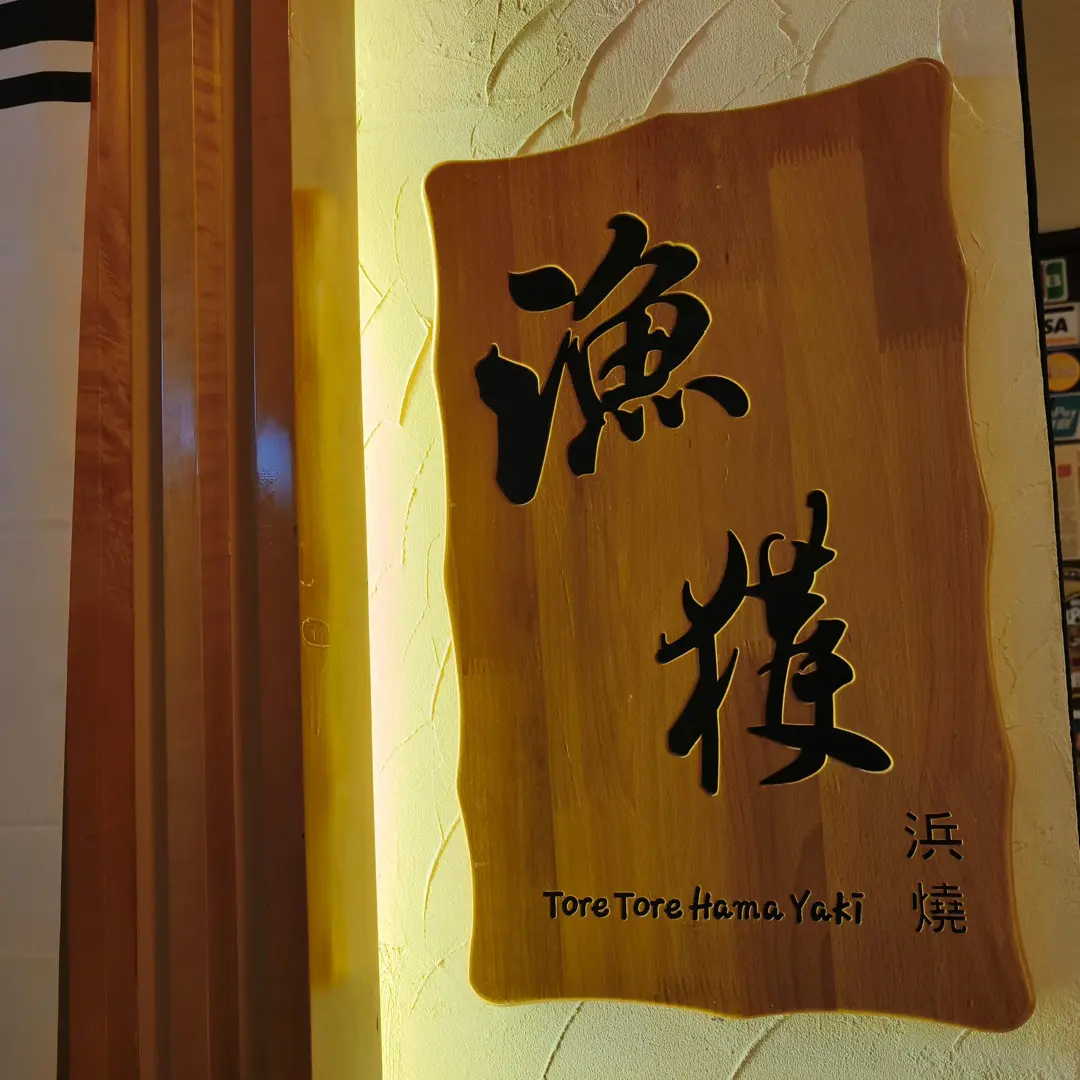 漁
獲
浜
燒
Tore Tore Hama Yaki
SA